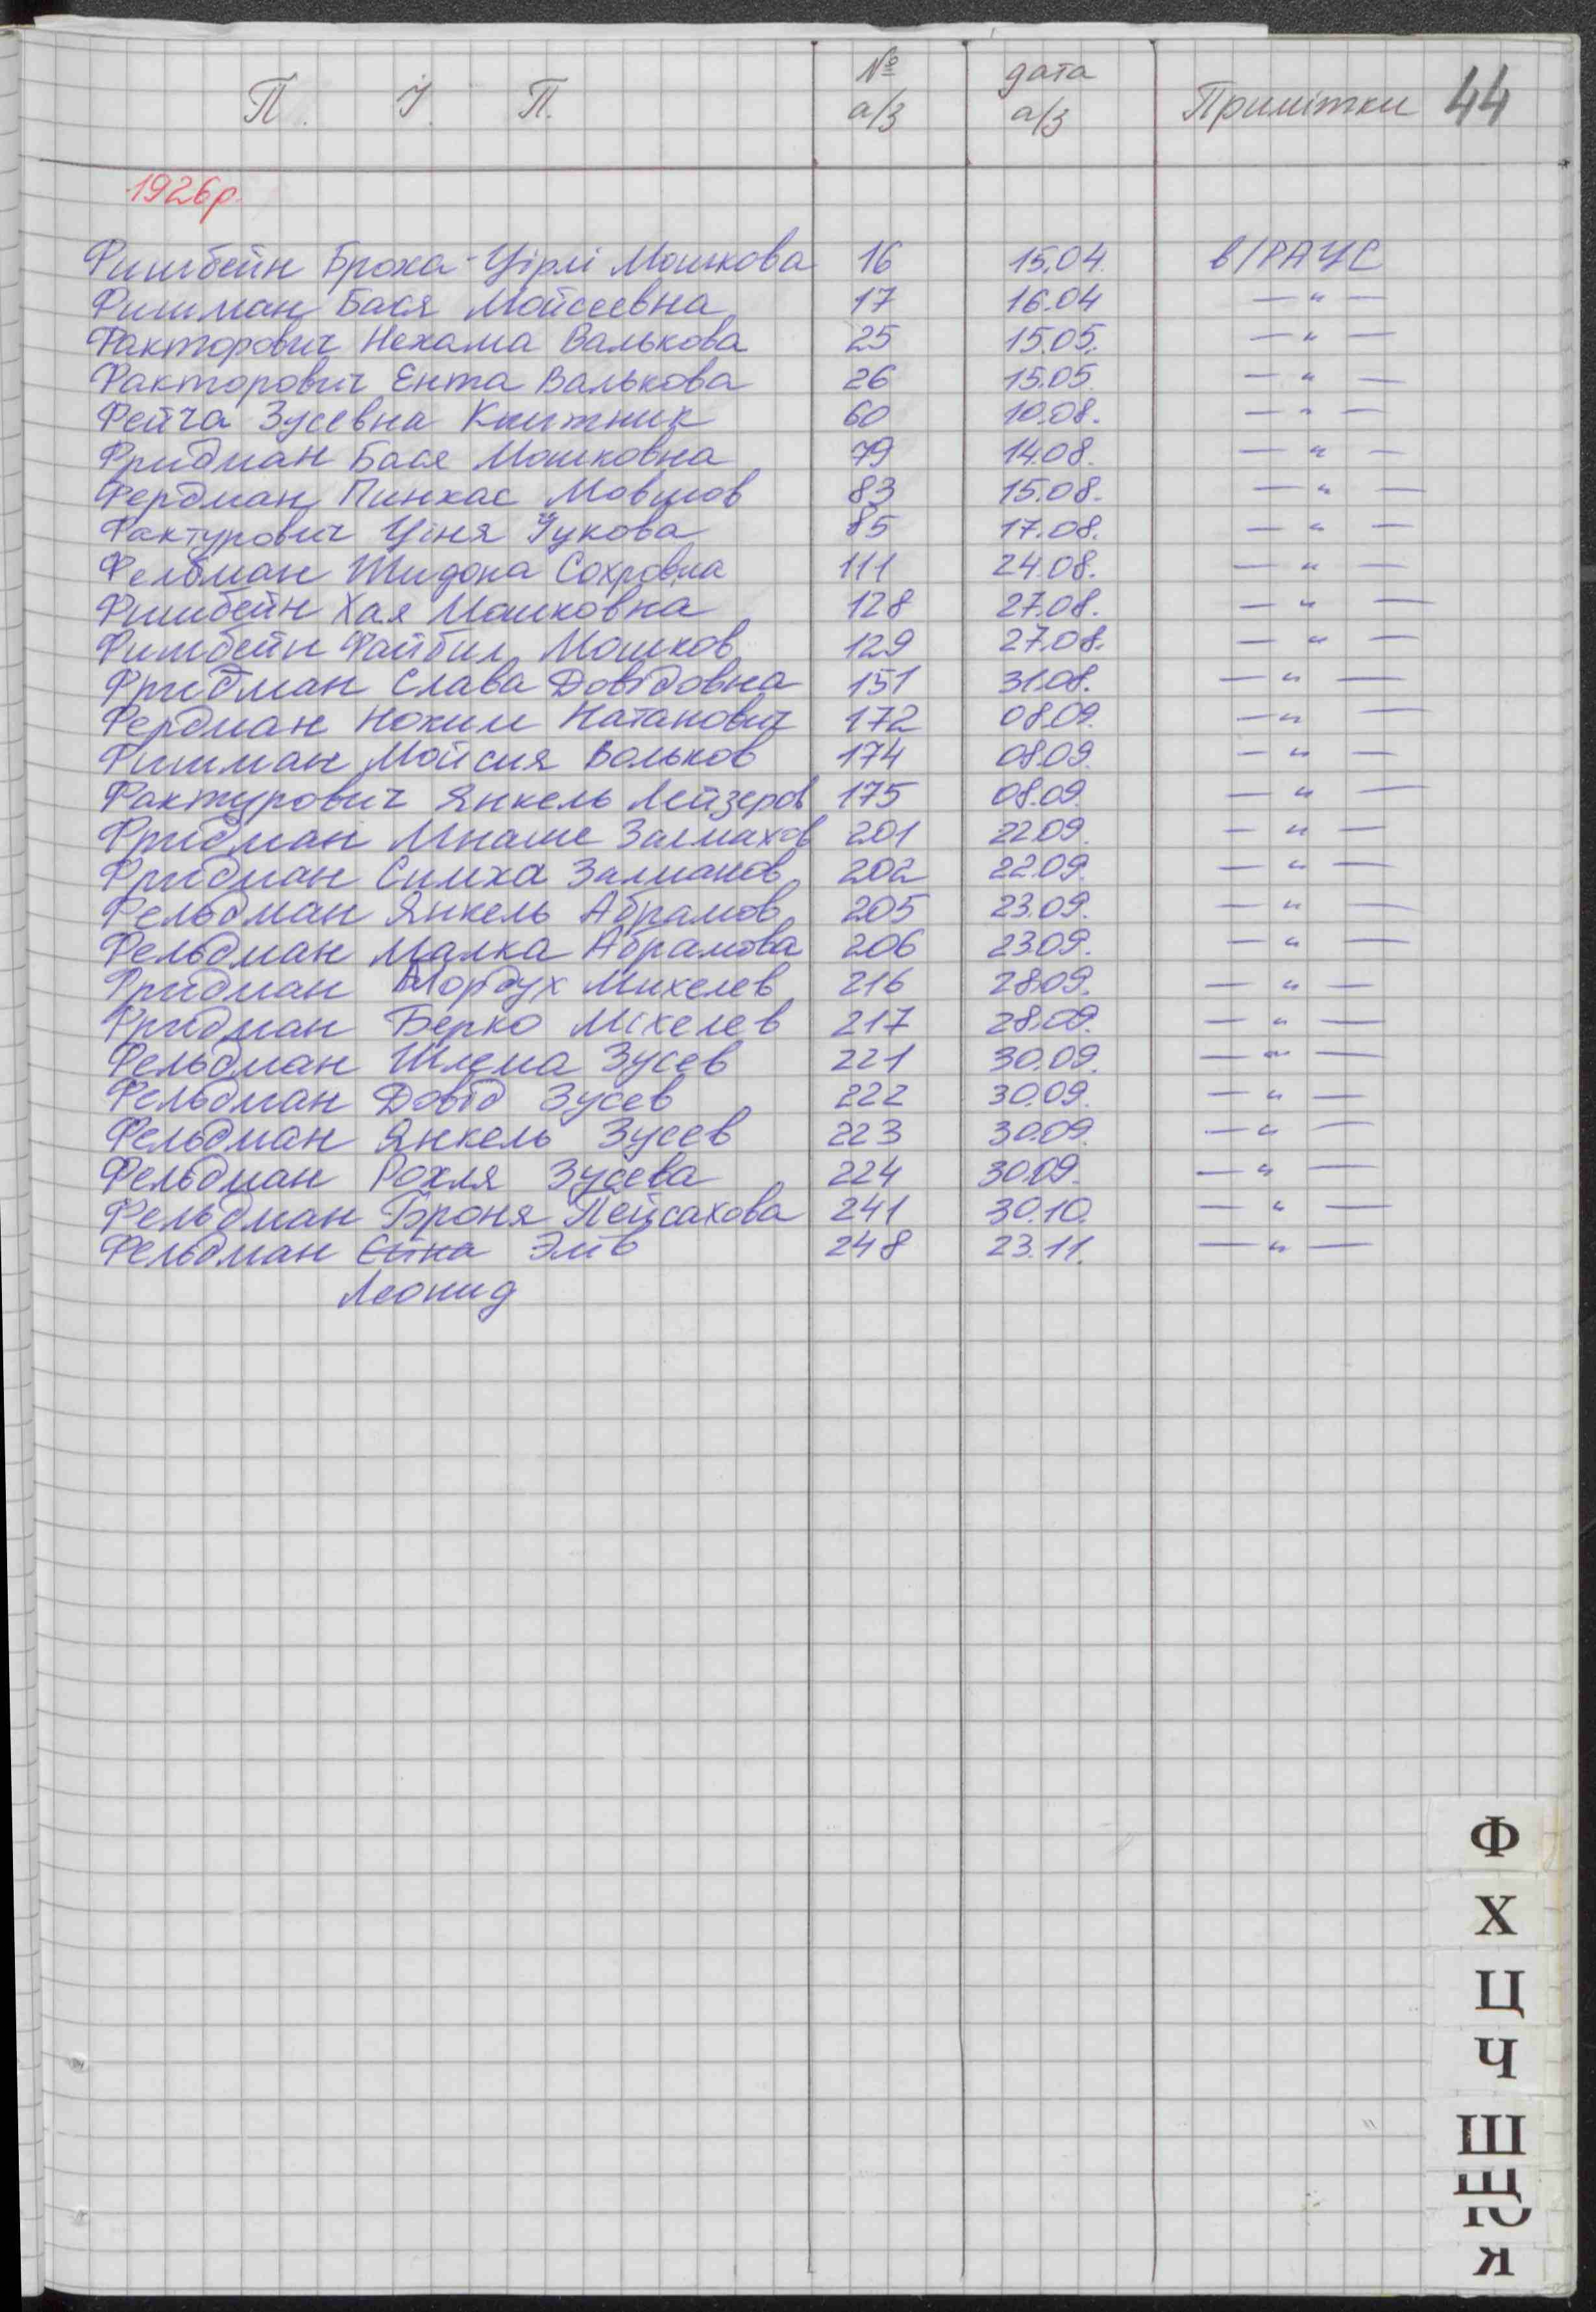 П. І. П. № а/з дата а/з Примітки 44
1926р.
Фишбейн Броха-Цірлі Мошкова 16 15.04. в/РАЦС
Фишман Бася Мойсеевна 17 16.04 — " —
Факторович Нехама Валькова 25 15.05. — " —
Факторович Ента Валькова 26 15.05. — " —
Фейга Зусевна Книжник 60 10.08. — " —
Фридман Бася Мошковна 79 14.08. — " —
Фердман Пинхас Мовшов 83 15.08. — " —
Фактурович Ціня Чукова 85 17.08. — " —
Фельдман Сохровна 111 24.08. — " —
Фишбейн Хая Мошковна 128 27.08. — " —
Фишбейн Файбил Мошков 129 27.08. — " —
Фридман Слава Довідовна 151 31.08. — " —
Фердман Нохим Натанович 172 08.09. — " —
Фишман Мойсия Вольков 174 08.09. — " —
Фактурович Янкель Лейзеров 175 08.09. — " —
Фридман Мнаше Залманов 201 22.09. — " —
Фридман Симха Залманов 202 22.09. — " —
Фельдман Янкель Абрамов 205 23.09. — " —
Фельдман Малка Абрамова 206 23.09. — " —
Фридман Мордух Михелев 216 28.09. — " —
Фридман Берко Міхелев 217 28.09. — " —
Фельдман Шлема Зусев 221 30.09. — " —
Фельдман Довід Зусев 222 30.09. — " —
Фельдман Янкель Зусев 223 30.09. — " —
Фельдман Рохля Зусева 224 30.09. — " —
Фельдман Броня Пейсахова 241 30.10. — " —
Фельдман Элів 248 23.11. — " —
Леонид
Ф
Х
Ц
Ч
Ш
Щ
Ю
Я